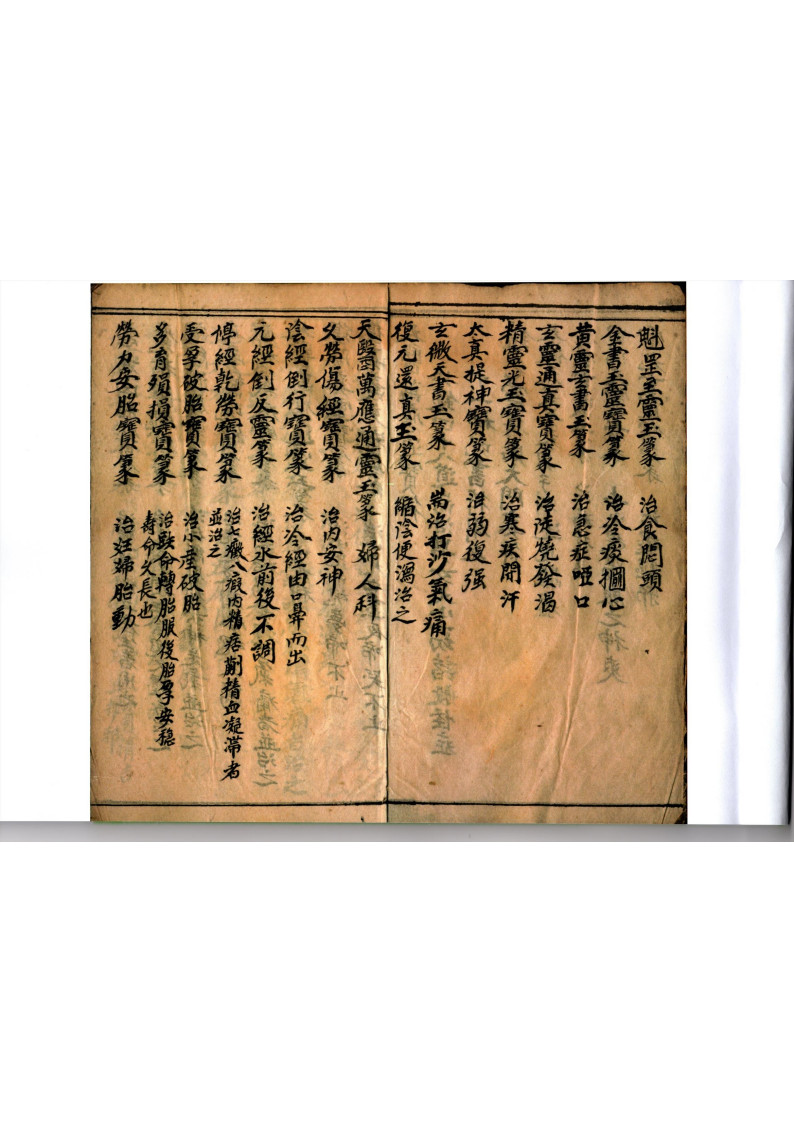 魁罡至靈玉篆 治食悶頭
全書玉靈寶篆 治冷痰摑心
黄靈玄書玉篆 治急症啞口
玄靈通真寶篆 治陡燒發渴
精靈光玉寶篆 治寒疾開汗
太真捉神寶篆 治弱復强
玄微天書玉篆 耑治打沙氣痛
復元還真玉篆 縮陰便濁治之
天醫萬應通靈玉篆 婦人科
久勞傷經寶篆 治内安神
陰經倒行寶篆 治冷經由口鼻而出
元經倒反靈篆 治經水前後不調
停經乾勞寶篆 治七癥八瘕内精痞劘精血凝滯者
並治之
受孕破胎寶篆 治小產破胎
多育殞損寶篆 治跌命轉胎服後胎孕安穩
壽命久長也
勞力安胎寶篆 治妊婦胎動